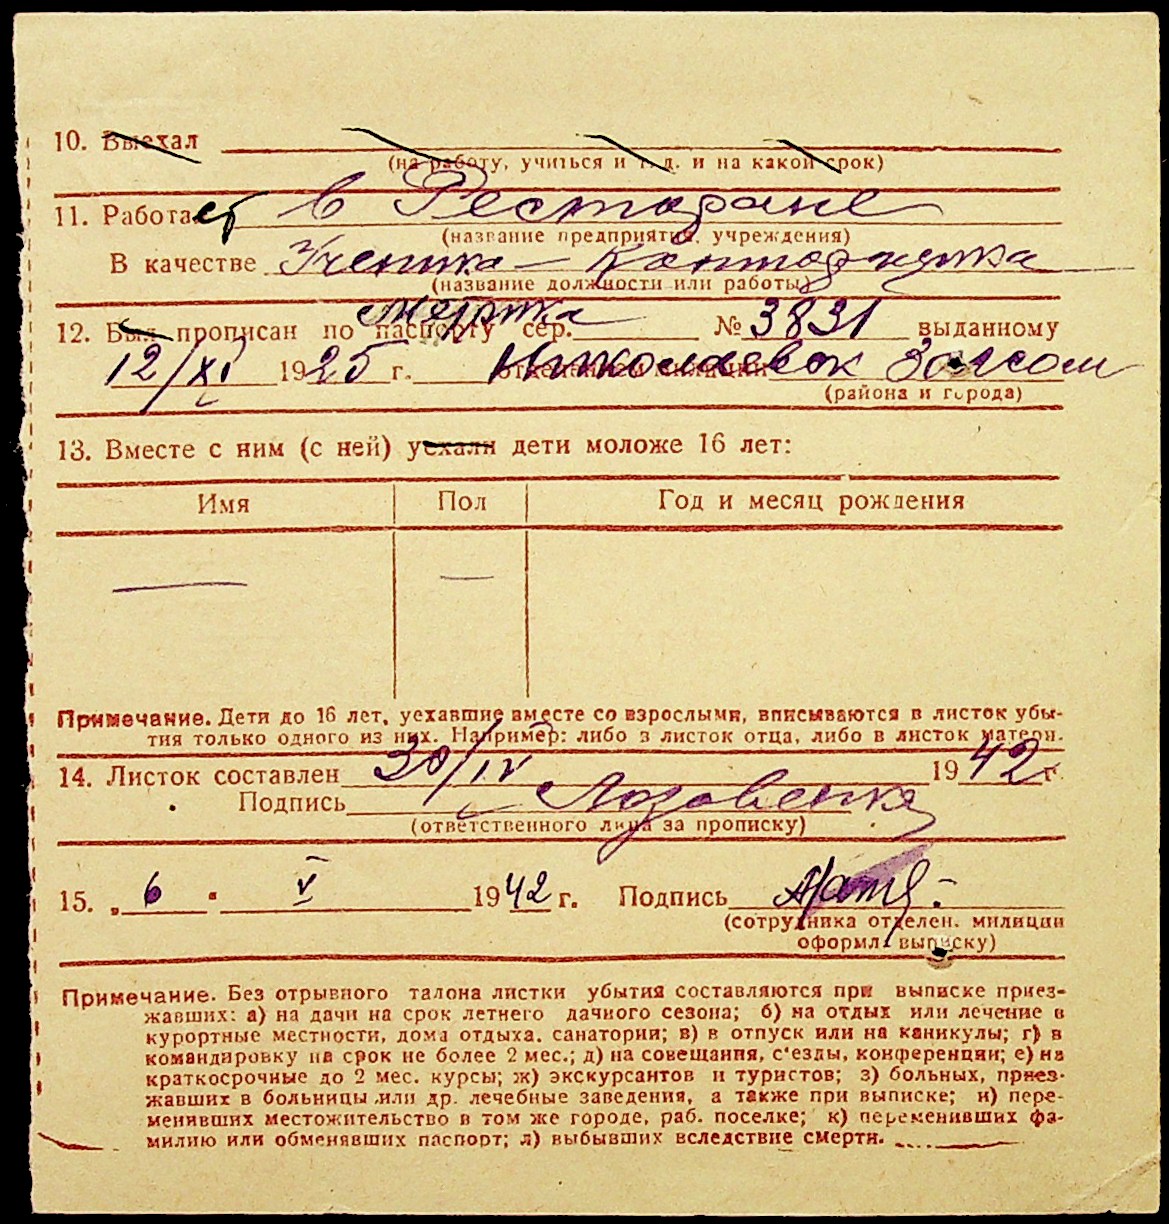 10. Выехал
(на работу, учиться и т. д. и на какой срок)
11. Работает в Ресторане
(название предприятия, учреждения)
В качестве Ученика - Кантаржика
(название должности или работы)
метрика
12. Был прописан по паспорту сер. № 3831 выданному
12/XI 1925 г. отделением милиции Николаевск Загсом
(района и города)
13. Вместе с ним (с ней) уехали дети моложе 16 лет:
Имя Пол Год и месяц рождения
— —
Примечание. Дети до 16 лет, уехавшие вместе со взрослыми, вписываются в листок убы-
тия только одного из них. Например: либо в листок отца, либо в листок матери.
14. Листок составлен 30/IV 1942 г.
Подпись Лозовенко
(ответственного лица за прописку)
15. „ 6 " V 1942 г. Подпись
(сотрудника отделен. милиции
оформл. выписку)
Примечание. Без отрывного талона листки убытия составляются при выписке приез-
жавших: а) на дачи на срок летнего дачного сезона; б) на отдых или лечение в
курортные местности, дома отдыха, санатории; в) в отпуск или на каникулы; г) в
командировку на срок не более 2 мес.; д) на совещания, с'езды, конференции; е) на
краткосрочные до 2 мес. курсы; ж) экскурсантов и туристов; з) больных, приез-
жавших в больницы или др. лечебные заведения, а также при выписке; и) пере-
менивших местожительство в том же городе, раб. поселке; к) переменивших фа-
милию или обменявших паспорт; л) выбывших вследствие смерти.